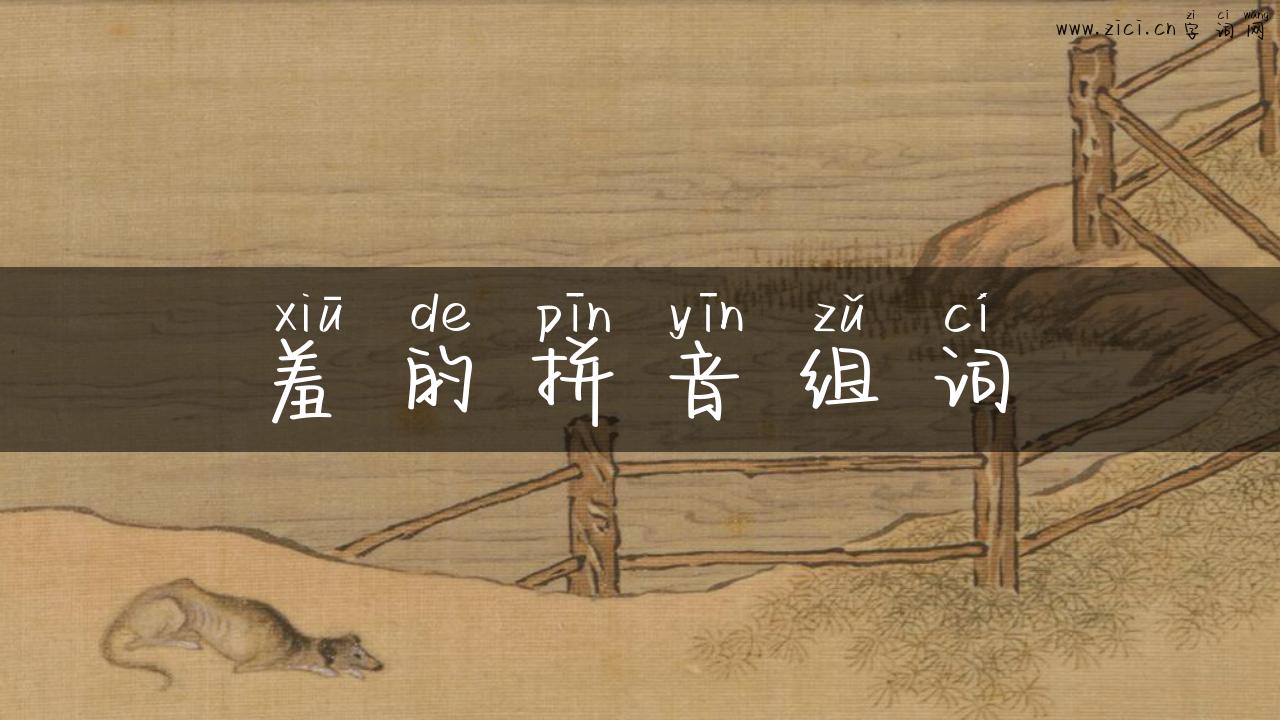 zì cí wǎng
www.zici.cn 字词网
xiū de pīn yīn zǔ cí
羞的拼音组词